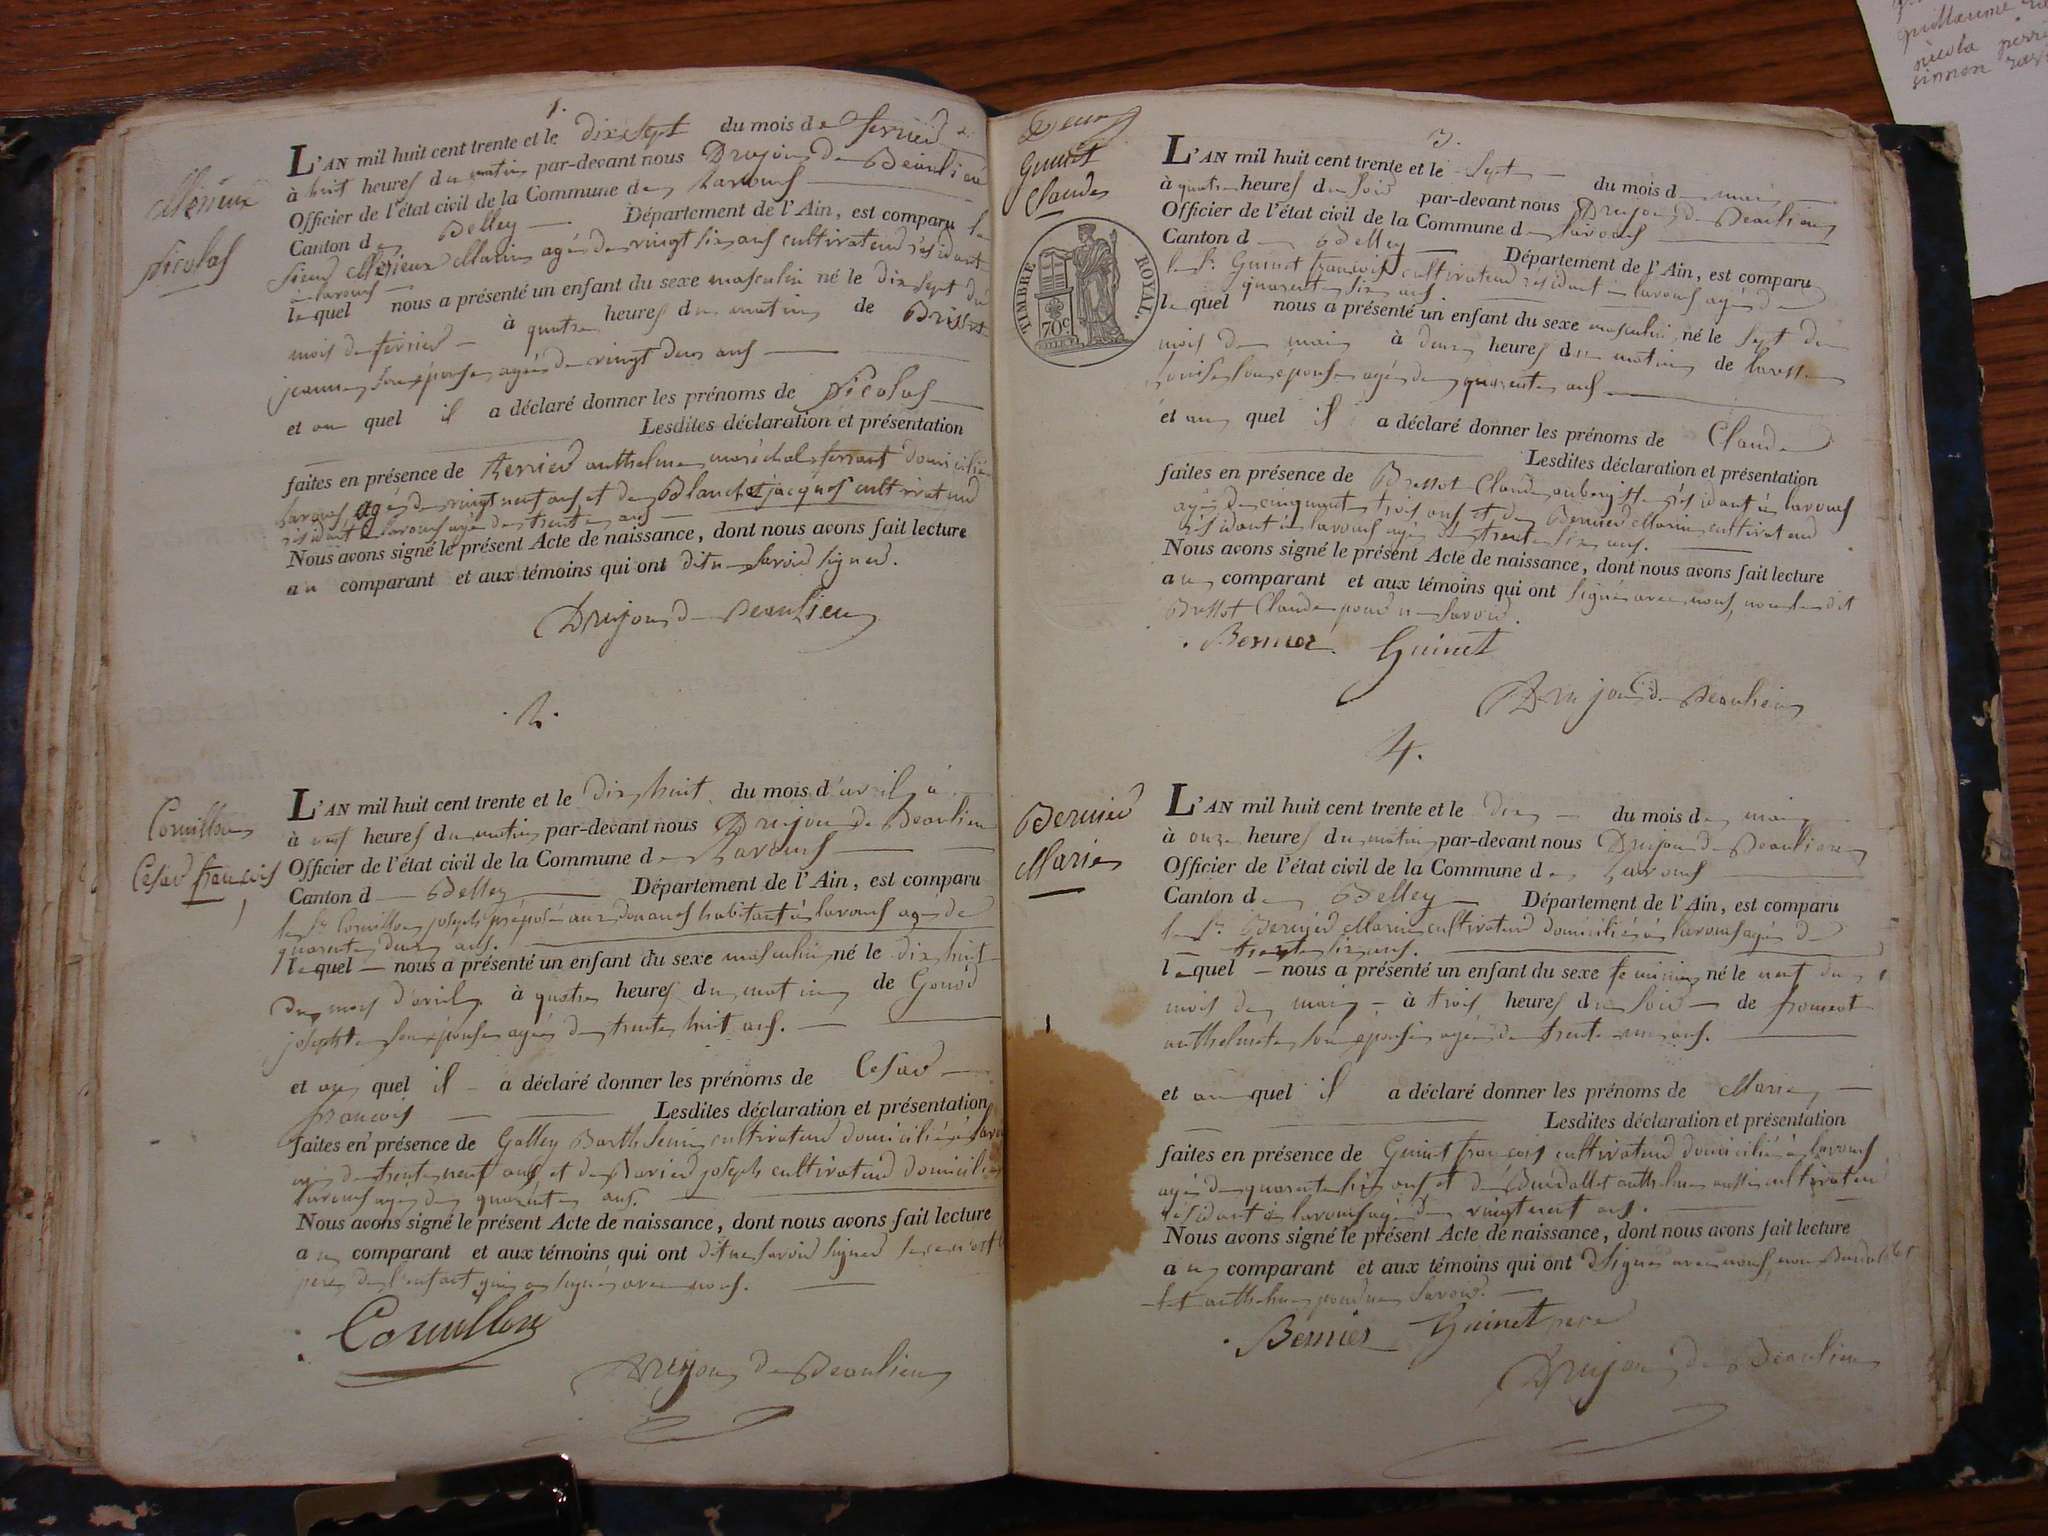 1.
Merieux
Nicolas
L'AN mil huit cent trente et le dix sept du mois de fevrier
à huit heures du matin par-devant nous Drujon de Beaulieu
Officier de l'état civil de la Commune de Lavours
Canton de Belley Département de l'Ain, est comparu le
sieur Merieux Marin agé de vingt six ans cultivateur résidant
à lavours
lequel nous a présenté un enfant du sexe masculin né le dix sept du
mois de fevrier à quatre heures du matin de
jeanne son épouse agée de vingt deux ans
et au quel il a déclaré donner les prénoms de Nicolas
Lesdites déclaration et présentation
faites en présence de anthelme maréchal ferrant domicilié
lavours agé de vingt neuf ans et de Blanchet jacques cultivateur
résidant à lavours agé de trente ans
Nous avons signé le présent Acte de naissance, dont nous avons fait lecture
au comparant et aux témoins qui ont dit ne savoir signer.
Drujon de Beaulieu
2.
Cornillon
Cesar francois
L'AN mil huit cent trente et le dix huit du mois d'avril à
à neuf heures du matin par-devant nous Drujon de Beaulieu
Officier de l'état civil de la Commune de Lavours
Canton d Belley Département de l'Ain, est comparu
le Sr Cornillon joseph préposé aux douanes habitant à lavours agé de
quarente deux ans.
lequel nous a présenté un enfant du sexe masculin né le dix huit
du mois d'avril à quatre heures du matin de
josephte son épouse agée de trente huit ans.
et au quel il a déclaré donner les prénoms de Cesar
francois Lesdites déclaration et présentation
faites en présence de Galley Barthelemi cultivateur domicilié à
agé de trente neuf ans et de joseph cultivateur domicilié
lavours agé de quarente ans.
Nous avons signé le présent Acte de naissance, dont nous avons fait lecture
au comparant et aux témoins qui ont dit ne savoir signer
pere de l'enfant qui a signé avec nous.
Cornillon
Drujon de Beaulieu
3.
Guinet
Claude
TIMBRE ROYAL.
70c
L'AN mil huit cent trente et le Sept du mois de mai
à quatre heures du soir par-devant nous Drujon de Beaulieu
Officier de l'état civil de la Commune de lavours
Canton d Belley Département de l'Ain, est comparu
le Sr. Guinet francois cultivateur residant à lavours agé de
quarente six ans.
lequel nous a présenté un enfant du sexe masculin né le sept du
mois de mai à deux heures du matin de
Louise son épouse agée de quarente ans
et au quel il a déclaré donner les prénoms de Claude
Lesdites déclaration et présentation
faites en présence de Brettot Claude aubergiste résidant à lavours
agé de cinquante trois ans et de Bernier Marin cultivateur
résidant à lavours agé de trente six ans.
Nous avons signé le présent Acte de naissance, dont nous avons fait lecture
au comparant et aux témoins qui ont signé avec nous, non le dit
Brettot Claude pour ne savoir.
Bernier Guinet
Drujon de Beaulieu
4.
Bernier
Marie
L'AN mil huit cent trente et le dix du mois de mai
à onze heures du matin par-devant nous Drujon de Beaulieu
Officier de l'état civil de la Commune de Lavours
Canton de Belley Département de l'Ain, est comparu
le Sr. Bernier Marin cultivateur domicilié à lavours agé de
trente six ans.
lequel nous a présenté un enfant du sexe feminin né le neuf du
mois de mai à trois heures du soir de froment
anthelmete son epouse agée de trente un ans.
et au quel il a déclaré donner les prénoms de Marie
Lesdites déclaration et présentation
faites en présence de Guinet françois cultivateur domicilié à lavours
agé de quarente six ans et de anthelme aussi cultivateur
résidant à lavours agé de vingt neuf ans.
Nous avons signé le présent Acte de naissance, dont nous avons fait lecture
au comparant et aux témoins qui ont signé avec nous, non
anthelme pour ne savoir.
Bernier Guinet pere
Drujon de Beaulieu
guillaume
nicola pierre
simon